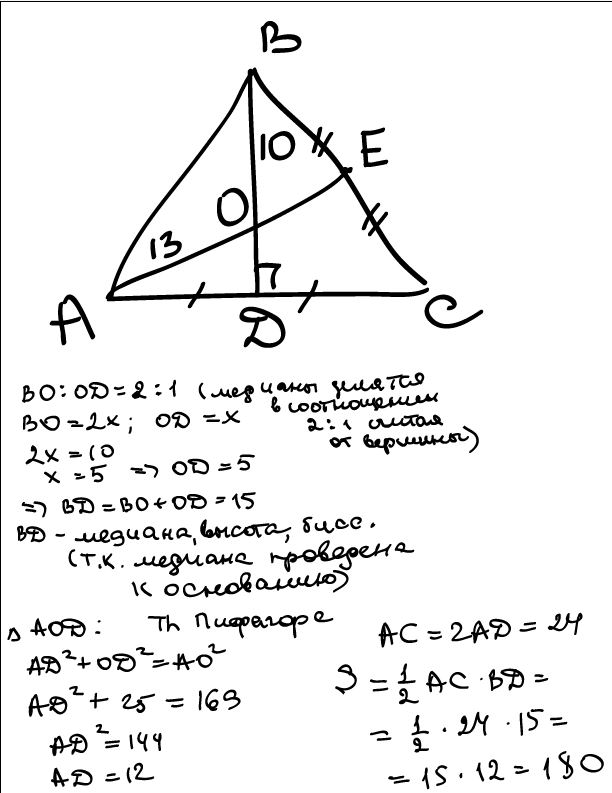 B
10
E
O
13
A
D
C
BO:OD=2:1 (медианы делятся
в соотношении
2:1 считая
от вершины)
BO=2x; OD=x
2x=10
x=5 => OD=5
=> BD=BO+OD=15
BD - медиана, высота, бисс.
(т.к. медиана проведена
к основанию)
△AOD: Th Пифагора
AD²+OD²=AO²
AD²+25=169
AD²=144
AD=12
AC=2AD=24
S=½AC·BD=
=½·24·15=
=15·12=180